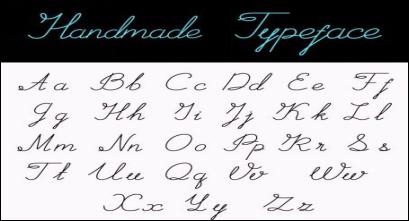 Handmade Typeface
Aa Bb Cc Dd Ee Ff
Gg Hh Ii Jj Kk Ll
Mm Nn Oo Pp Rr Ss
Tt Uu Qq Vv Ww
Xx Yy Zz